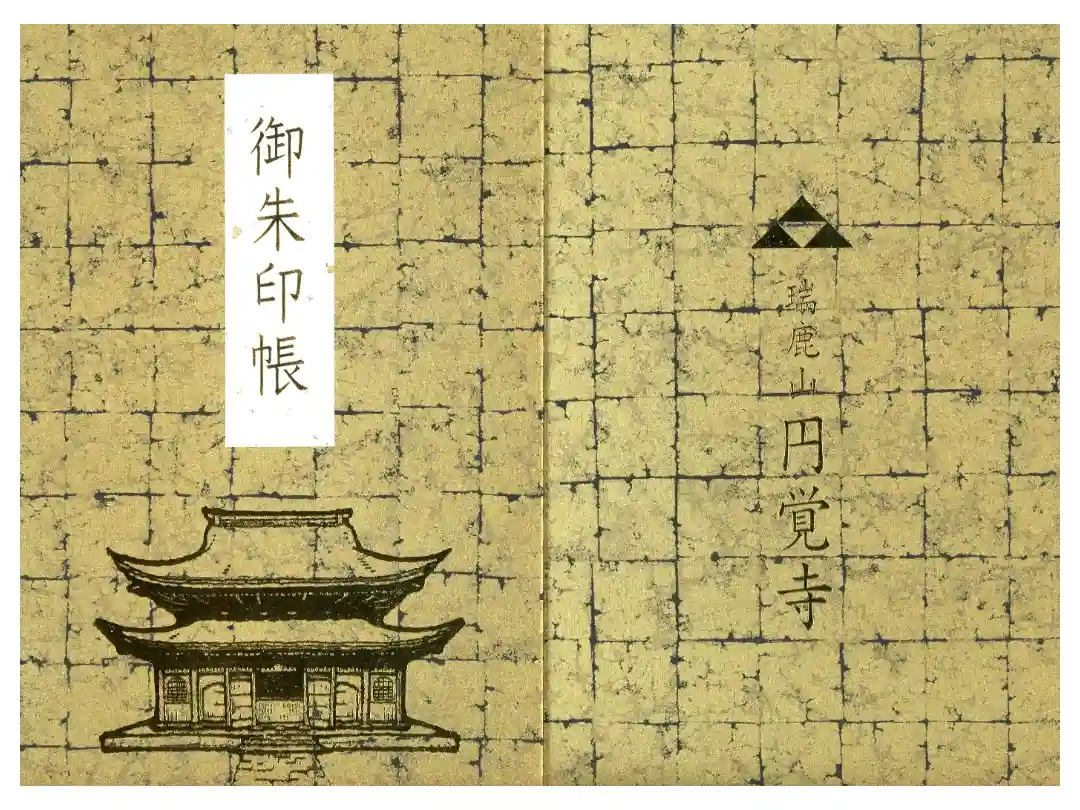 御朱印帳
瑞鹿山円覚寺